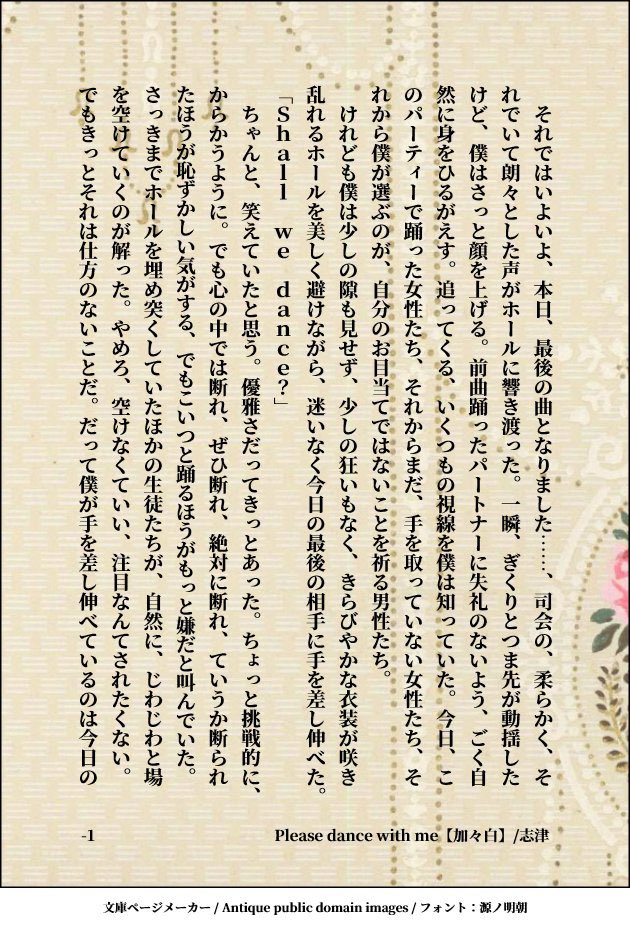 それではいよいよ、本日、最後の曲となりました……、司会の、柔らかく、そ
れでいて朗々とした声がホールに響き渡った。一瞬、ぎくりとつま先が動揺した
けど、僕はさっと顔を上げる。前曲踊ったパートナーに失礼のないよう、ごく自
然に身をひるがえす。追ってくる、いくつもの視線を僕は知っていた。今日、こ
のパーティーで踊った女性たち、それからまだ、手を取っていない女性たち、そ
れから僕が選ぶのが、自分のお目当てではないことを祈る男性たち。
　けれども僕は少しの隙も見せず、少しの狂いもなく、きらびやかな衣装が咲き
乱れるホールを美しく避けながら、迷いなく今日の最後の相手に手を差し伸べた。
「Ｓｈａｌｌ　ｗｅ　ｄａｎｃｅ？」
　ちゃんと、笑えていたと思う。優雅さだってきっとあった。ちょっと挑戦的に、
からかうように。でも心の中では断れ、ぜひ断れ、絶対に断れ、ていうか断られ
たほうが恥ずかしい気がする、でもこいつと踊るほうがもっと嫌だと叫んでいた。
さっきまでホールを埋め突くしていたほかの生徒たちが、自然に、じわじわと場
を空けていくのが解った。やめろ、空けなくていい、注目なんてされたくない。
でもきっとそれは仕方のないことだ。だって僕が手を差し伸べているのは今日の
-1
Please dance with me【加々白】/志津
文庫ページメーカー / Antique public domain images / フォント：源ノ明朝